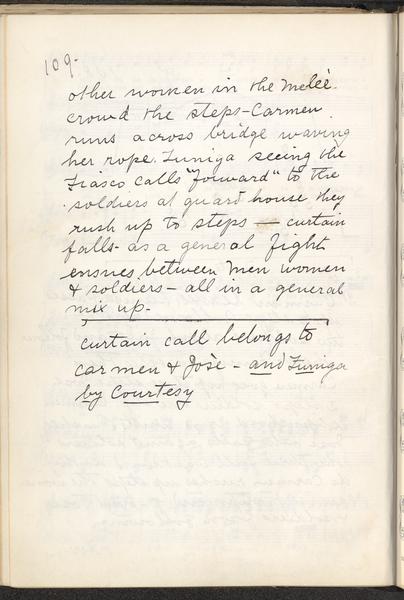 109-
other women in the meleè
crowd the steps - Carmen
runs across bridge waving
her rope. Zuniga seeing the
Fiasco calls "forward" to the
soldiers at guard house they
rush up to steps — curtain
falls - as a general fight
ensues between men women
& soldiers - all in a general
mix up -
curtain call belongs to
Carmen & Josè - and Zuniga
by Courtesy